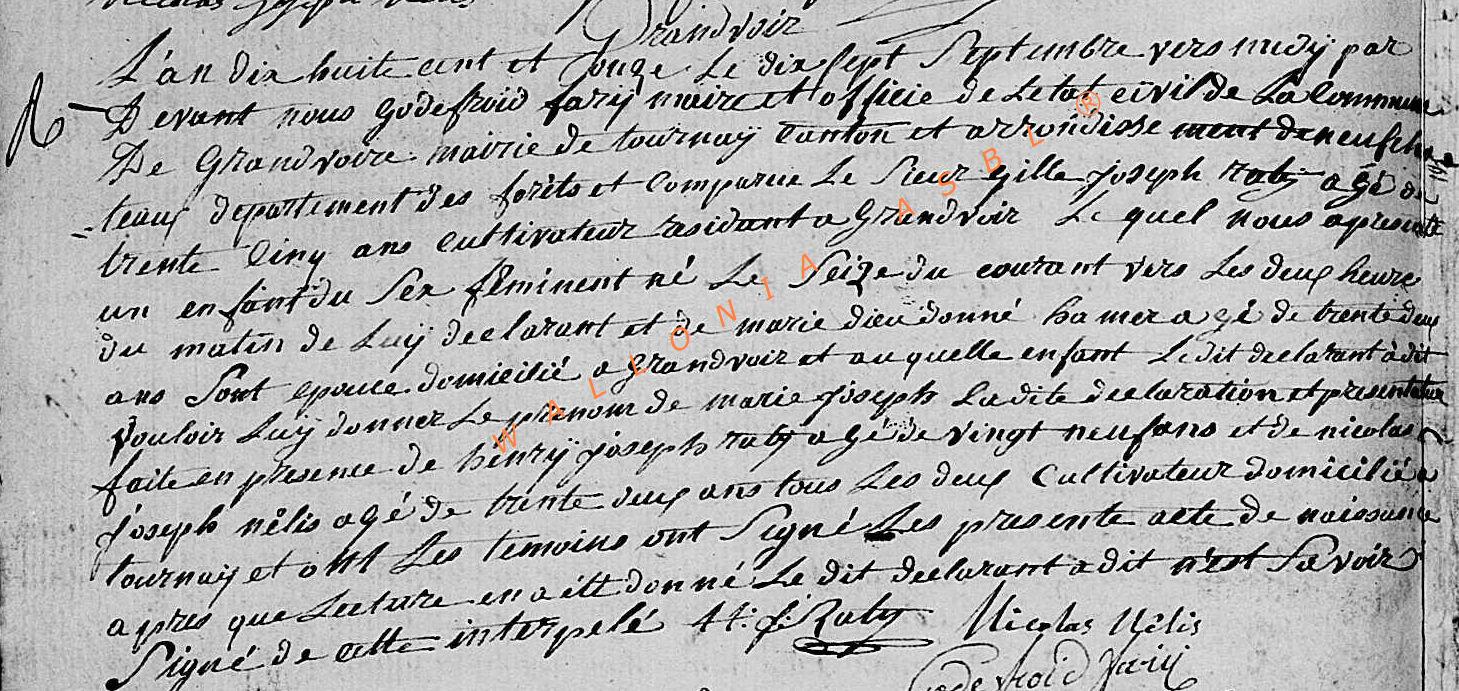 Nicolas Joseph Nelis
Grandvoir
L'an dix huite cent et onze Le dix sept Septembre vers midÿ par
Devant nous Godefroid farij maire et officie de Letat civil de La Commune
De Grandvoire mairie de tournaÿ Canton et arrondisse ment de neufcha
teaux departement des forèts et Comparue Le Sieur gille joseph ratz agé de
trente Cinq ans Cultivateur residant a Grandvoir Le quel nous apresenté
un enfant du Sex féminent né Le Seize du courant vers Les deux heure
du matin de Luÿ declarant et de marie dieudonné hamer agé de trente deux
ans Sont epouce domicilié a Grandvoir et au quelle enfant Ledit declarant à dit
vouloir Luÿ donner Le prenom de marie joseph Ladite declaration et presentation
faite en presence de hènrÿ joseph ratz agé de vingt neuf ans et de nicolas
joseph nèlis agé de trente deux ans tous Les deux Cultivateur domicilié a
tournaÿ et ont Les temoins ont Signé Les presente acte de naissance
apres que Lecture en a ett donné Le dit declarant a dit n'est Savoir
Signé de cette interpelé H: j: Ratz Nicolas Nèlis
Godefroid Farij
WALLONIA ASBL ®